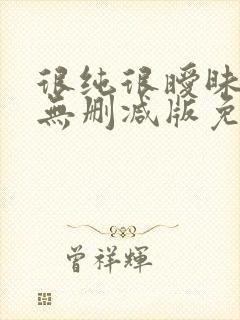 很纯很曖昧
無删减版免
曾祥輝